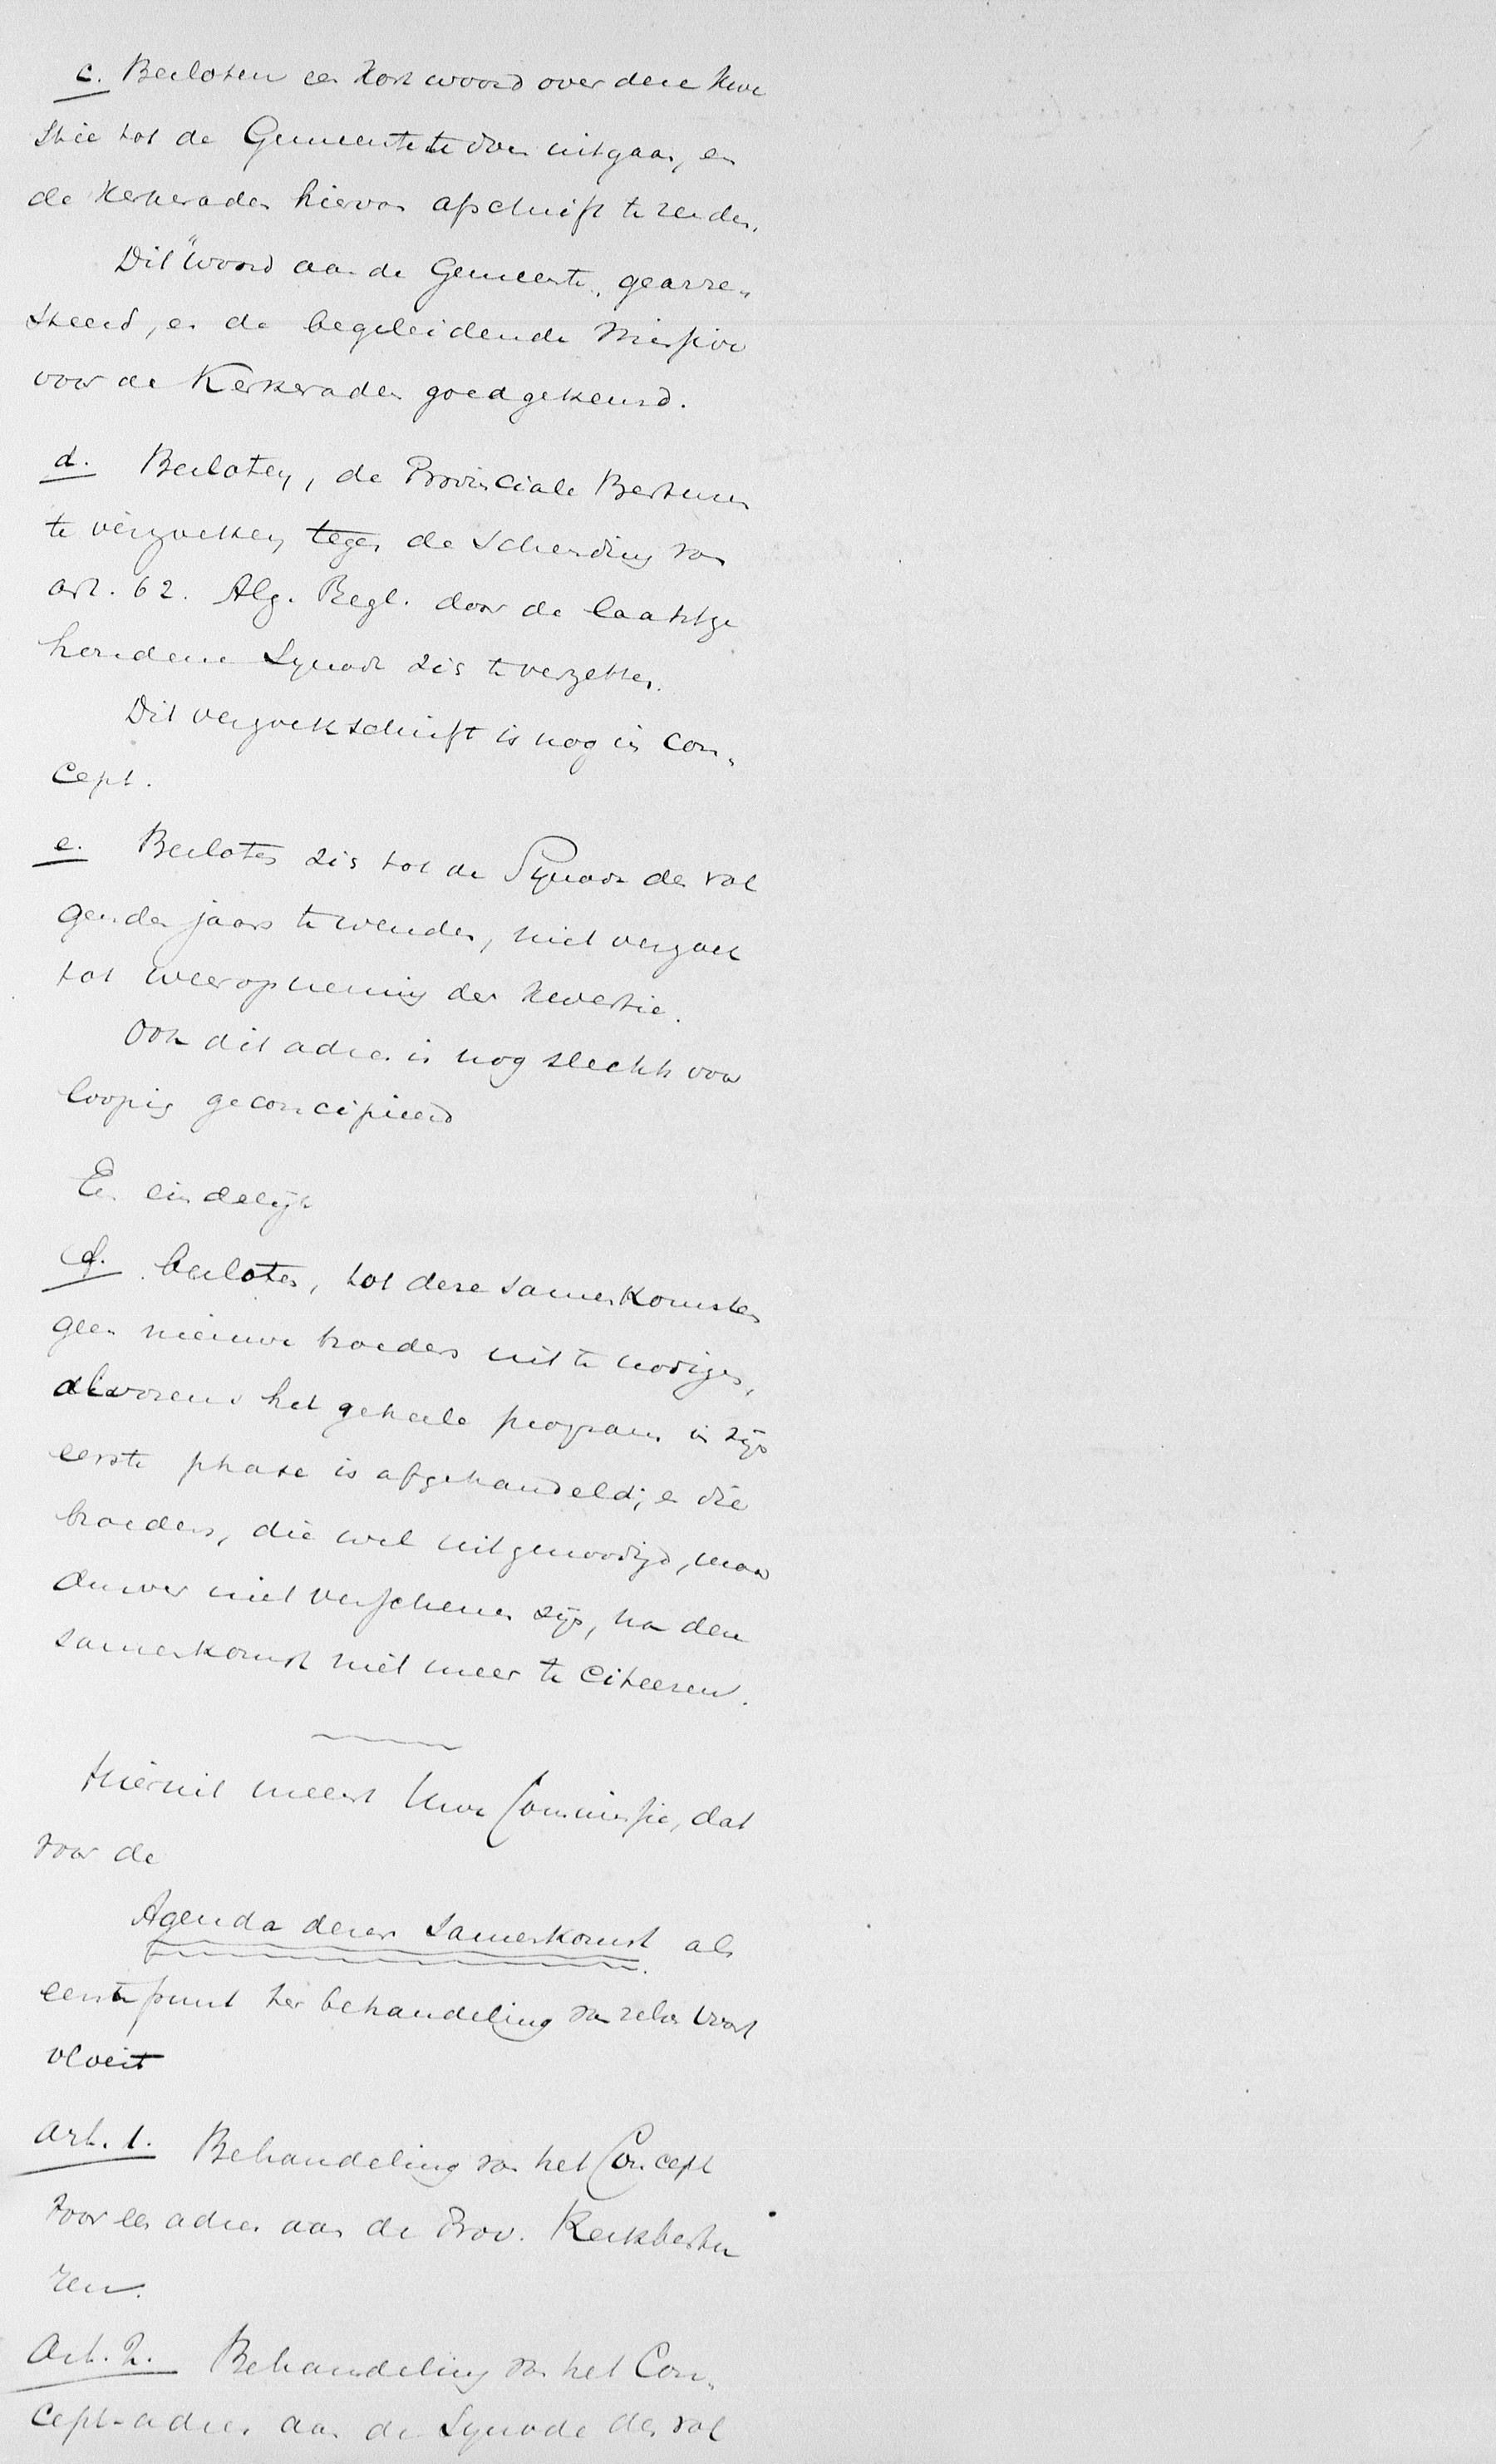 c. Besloten een kort woord over deze kwe
stie tot de Gemeente te doen uitgaan, en
de Kerkeraden hiervan afschrift te zenden.
Dit "woord aan de Gemeente" gearre„
steerd, en de begeleidende missive
voor de Kerkeraden goedgekeurd.
d. Besloten, de Provinciale Besturen
te verzoeken tegen de schending van
art. 62. Alg. Regl. door de laatstge
houdene Synode zich te verzetten.
Dit verzoekschrift is nog in con„
cept.
e. Besloten zich tot de Synode des vol
genden jaars te wenden, met verzoek
tot weeropneming der kwestie.
Ook dit adres is nog slechts voor
loopig geconcipieerd
En eindelijk
f. besloten, tot deze samenkomsten
geen nieuwe broeders uit te nodigen,
alvorens het geheele program in zijn
eerste phase is afgehandeld; en die
broeders, die wel uitgenoodigd, maar
alsnog niet verschenen zijn, na deze
samenkomst niet meer te citeeren.
Hieruit meent Uwe Commissie, dat
voor de
Agenda dezer Samenkomst als
eerste punt ter behandeling van zelve voort
vloeit
Art. 1. Behandeling van het Concept
voor een adres aan de Prov. Kerkbestu
ren.
Art. 2. Behandeling van het Con„
cept-adres aan de Synode des vol